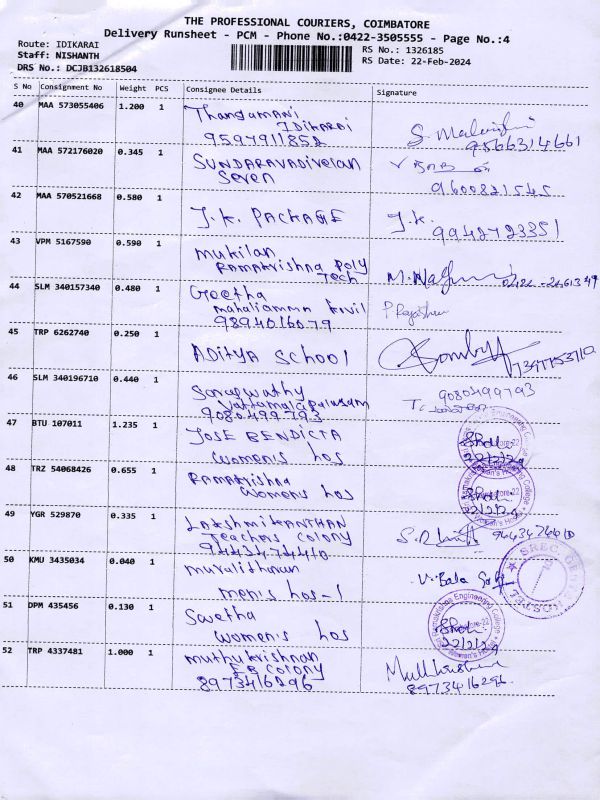 THE PROFESSIONAL COURIERS, COIMBATORE
Delivery Runsheet - PCM - Phone No.:0422-3505555 - Page No.:4
Route: IDIKARAI
RS No.: 1326185
Staff: NISHANTH
RS Date: 22-Feb-2024
DRS No.: DCJB132618504
S No Consignment No Weight PCS Consignee Details Signature
40 MAA 573055406 1.200 1 Thangamani
Idikarai
9597911852
S. 9566314661
41 MAA 572176020 0.345 1 SUNDARAVADIVELAN
Seven
9600821545
42 MAA 570521668 0.580 1 J.K. PACKAGE J.K.
9942723351
43 VPM 5167590 0.590 1 Mukilan
Ramakrishna Poly
Tech
44 SLM 340157340 0.480 1 Geetha
Mahaliamman Kovil
9894016079
45 TRP 6262740 0.250 1 Aditya School
46 SLM 340196710 0.440 1
9080499793
9080499793
47 BTU 107011 1.235 1 JOSE BENDICTA
Women's hos
22/2/24
48 TRZ 54068426 0.655 1 Ramakrishna
Women's hos
22/2/24
49 YGR 529870 0.335 1 LAKSHMIKANTHAN
Teachers Colony
9443474410
50 KMU 3435034 0.040 1 Muralidharan
Men's hos-1
V. Bala
51 DPM 435456 0.130 1 Swetha
Women's hos
22/2/24
52 TRP 4337481 1.000 1 Muthukrishnan
EB Colony
8973416296
8973416296